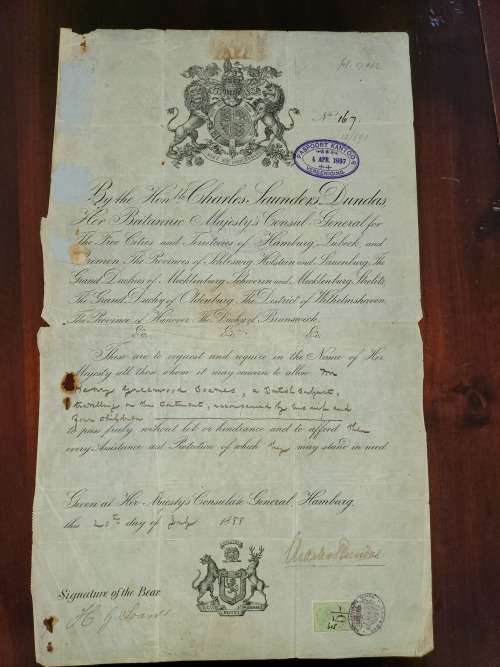 No 167.
PASPOORT KANTOOR
4 APR. 1897
VEREENIGING
By the Honble Charles Saunders Dundas
Her Britannic Majesty's Consul-General for
The Free Cities and Territories of Hamburg, Lubeck, and
Bremen. The Provinces of Schleswig Holstein and Lauenburg, The
Grand Duchies of Mecklenburg Schwerin and Mecklenburg Strelitz,
The Grand Duchy of Oldenburg. The District of Wilhelmshaven.
The Province of Hanover. The Duchy of Brunswick.
&c &c &c
These are to request and require in the Name of Her
Majesty all those whom it may concern to allow Mr
Henry Greenwood, a British subject,
travelling on the Continent, accompanied by his wife and
four children
to pass freely without let or hindrance and to afford them
every Assistance and Protection of which they may stand in need.
Given at Her Majesty's Consulate General, Hamburg,
this day of July 1888
Charles Dundas
Signature of the Bearer
H. G.